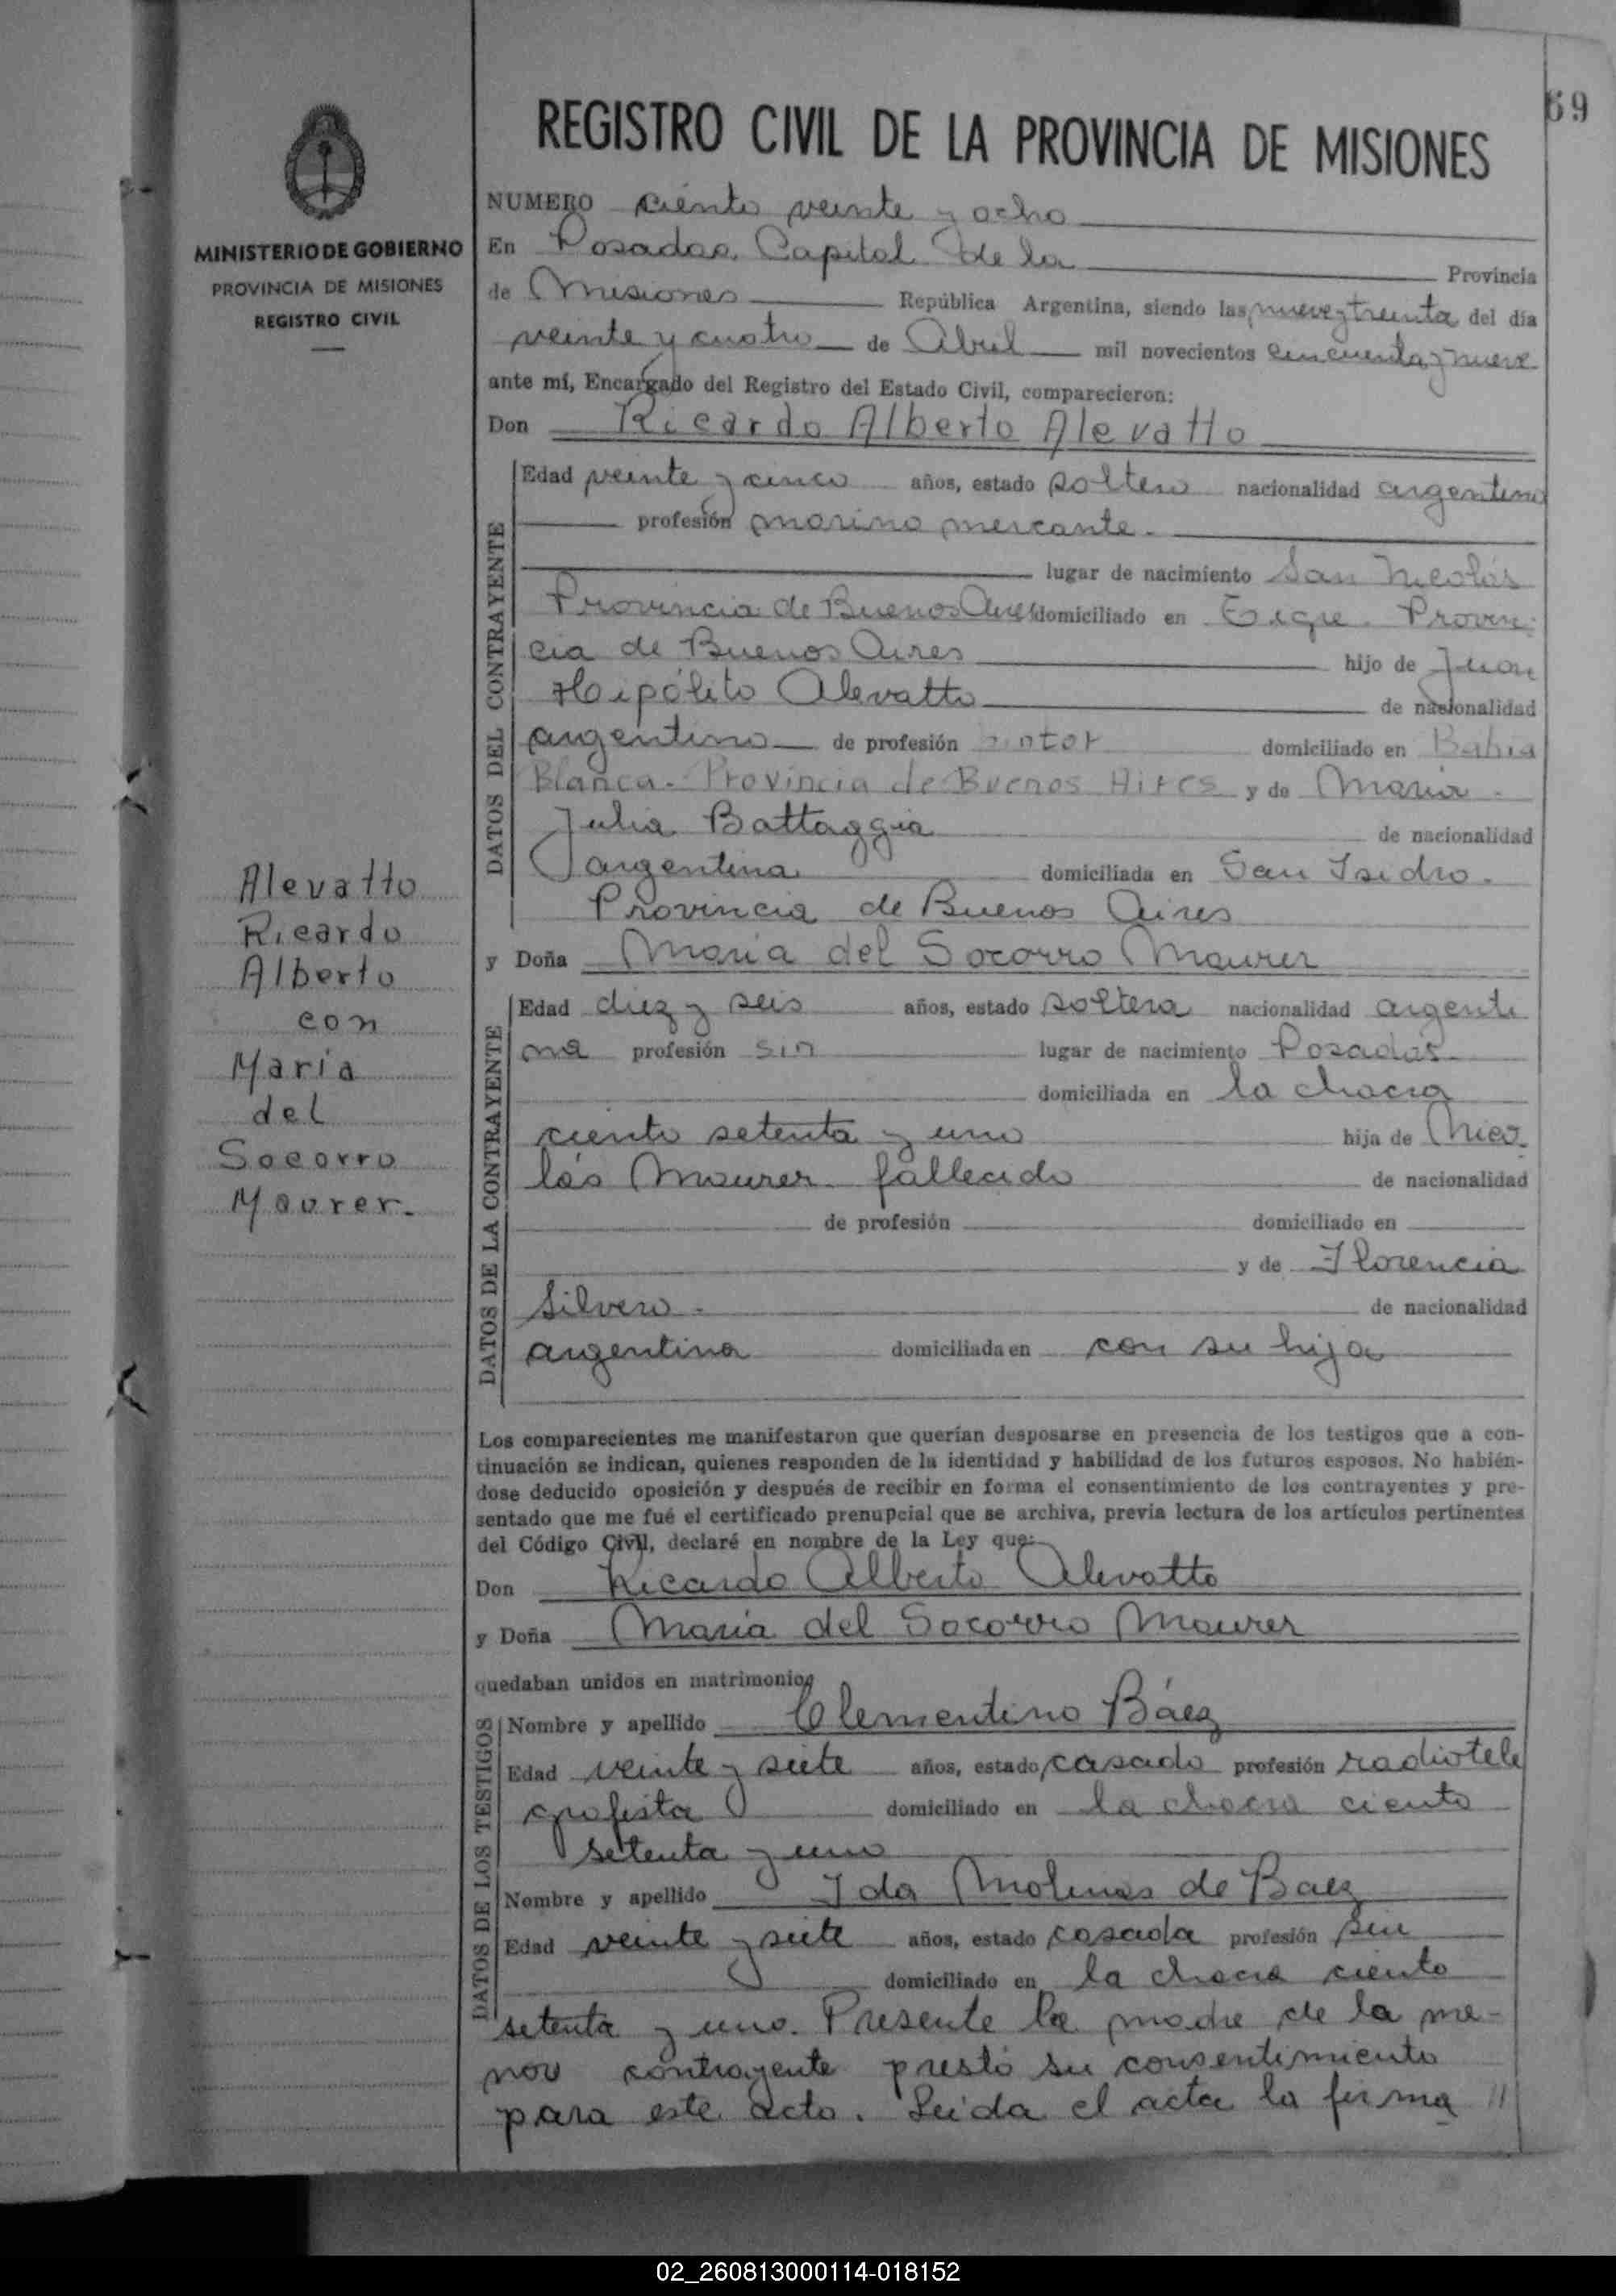 69
REGISTRO CIVIL DE LA PROVINCIA DE MISIONES
MINISTERIO DE GOBIERNO
PROVINCIA DE MISIONES
REGISTRO CIVIL
Alevatto
Ricardo
Alberto
con
María
del
Socorro
Maurer.
NUMERO ciento veinte y ocho
En Posadas, Capital de la Provincia
de Misiones República Argentina, siendo las nueve y treinta del día
veinte y cuatro de Abril mil novecientos cincuenta y nueve
ante mí, Encargado del Registro del Estado Civil, comparecieron:
Don Ricardo Alberto Alevatto
DATOS DEL CONTRAYENTE
Edad veinte y cinco años, estado soltero nacionalidad argentino
profesión marino mercante.
lugar de nacimiento San Nicolás
Provincia de Buenos Aires domiciliado en Tigre. Provin-
cia de Buenos Aires hijo de Juan
Hipólito Alevatto de nacionalidad
argentino de profesión pintor domiciliado en Bahia
Blanca. Provincia de Buenos Aires y de María
Julia Battaggia de nacionalidad
argentina domiciliada en San Isidro.
Provincia de Buenos Aires
y Doña María del Socorro Maurer
DATOS DE LA CONTRAYENTE
Edad diez y seis años, estado soltera nacionalidad argenti
na profesión sin lugar de nacimiento Posadas.
domiciliada en la chacra
ciento setenta y uno hija de Nico-
lás Maurer fallecido de nacionalidad
de profesión domiciliado en
y de Florencia
Silvero. de nacionalidad
argentina domiciliada en con su hija
Los comparecientes me manifestaron que querían desposarse en presencia de los testigos que a con-
tinuación se indican, quienes responden de la identidad y habilidad de los futuros esposos. No habién-
dose deducido oposición y después de recibir en forma el consentimiento de los contrayentes y pre-
sentado que me fué el certificado prenupcial que se archiva, previa lectura de los artículos pertinentes
del Código Civil, declaré en nombre de la Ley que:
Don Ricardo Alberto Alevatto
y Doña María del Socorro Maurer
quedaban unidos en matrimonio
DATOS DE LOS TESTIGOS
Nombre y apellido Clementino Báez
Edad veinte y siete años, estado casado profesión radiotele
grafista domiciliado en la chacra ciento
setenta y uno
Nombre y apellido Ida Molinas de Baez
Edad veinte y siete años, estado casada profesión sin
domiciliado en la chacra ciento
setenta y uno. Presente la madre de la me-
nor contrayente prestó su consentimiento
para este acto. Leída el acta la firma //
02_260813000114-018152